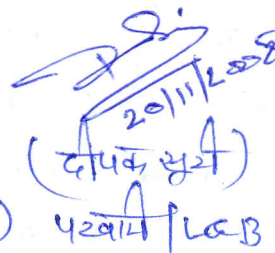 20/11/2008
(दीपक सूरी)
) पटवारी | LGB